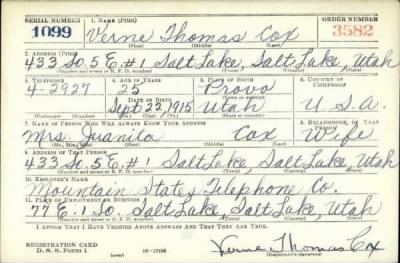 SERIAL NUMBER 1. NAME (Print) ORDER NUMBER
1099 Verne Thomas Cox 3582
(First) (Middle) (Last)
2. ADDRESS (Print)
433 So. 5 E. #1 Salt Lake, Salt Lake, Utah
(Number and street or R. F. D. number) (Town) (County) (State)
3. TELEPHONE 4. AGE IN YEARS 5. PLACE OF BIRTH 6. COUNTRY OF CITIZENSHIP
4-2927 25 Provo
DATE OF BIRTH
Sept. 22, 1915 Utah U.S.A.
(Exchange) (Number) (Mo.) (Day) (Yr.) (State or country)
7. NAME OF PERSON WHO WILL ALWAYS KNOW YOUR ADDRESS 8. RELATIONSHIP OF THAT PERSON
Mrs. Juanita Cox Wife
(Mr., Mrs., Miss) (First) (Middle) (Last)
9. ADDRESS OF THAT PERSON
433 So. 5 E #1 Salt Lake, Salt Lake, Utah
(Number and street or R. F. D. number) (Town) (County) (State)
10. EMPLOYER'S NAME
Mountain States Telephone Co.
11. PLACE OF EMPLOYMENT OR BUSINESS
77 E. 1 So. Salt Lake, Salt Lake, Utah
(Number and street or R. F. D. number) (Town) (County) (State)
I AFFIRM THAT I HAVE VERIFIED ABOVE ANSWERS AND THAT THEY ARE TRUE.
REGISTRATION CARD
D. S. S. Form 1 (over) Verne Thomas Cox
(Registrant's signature)